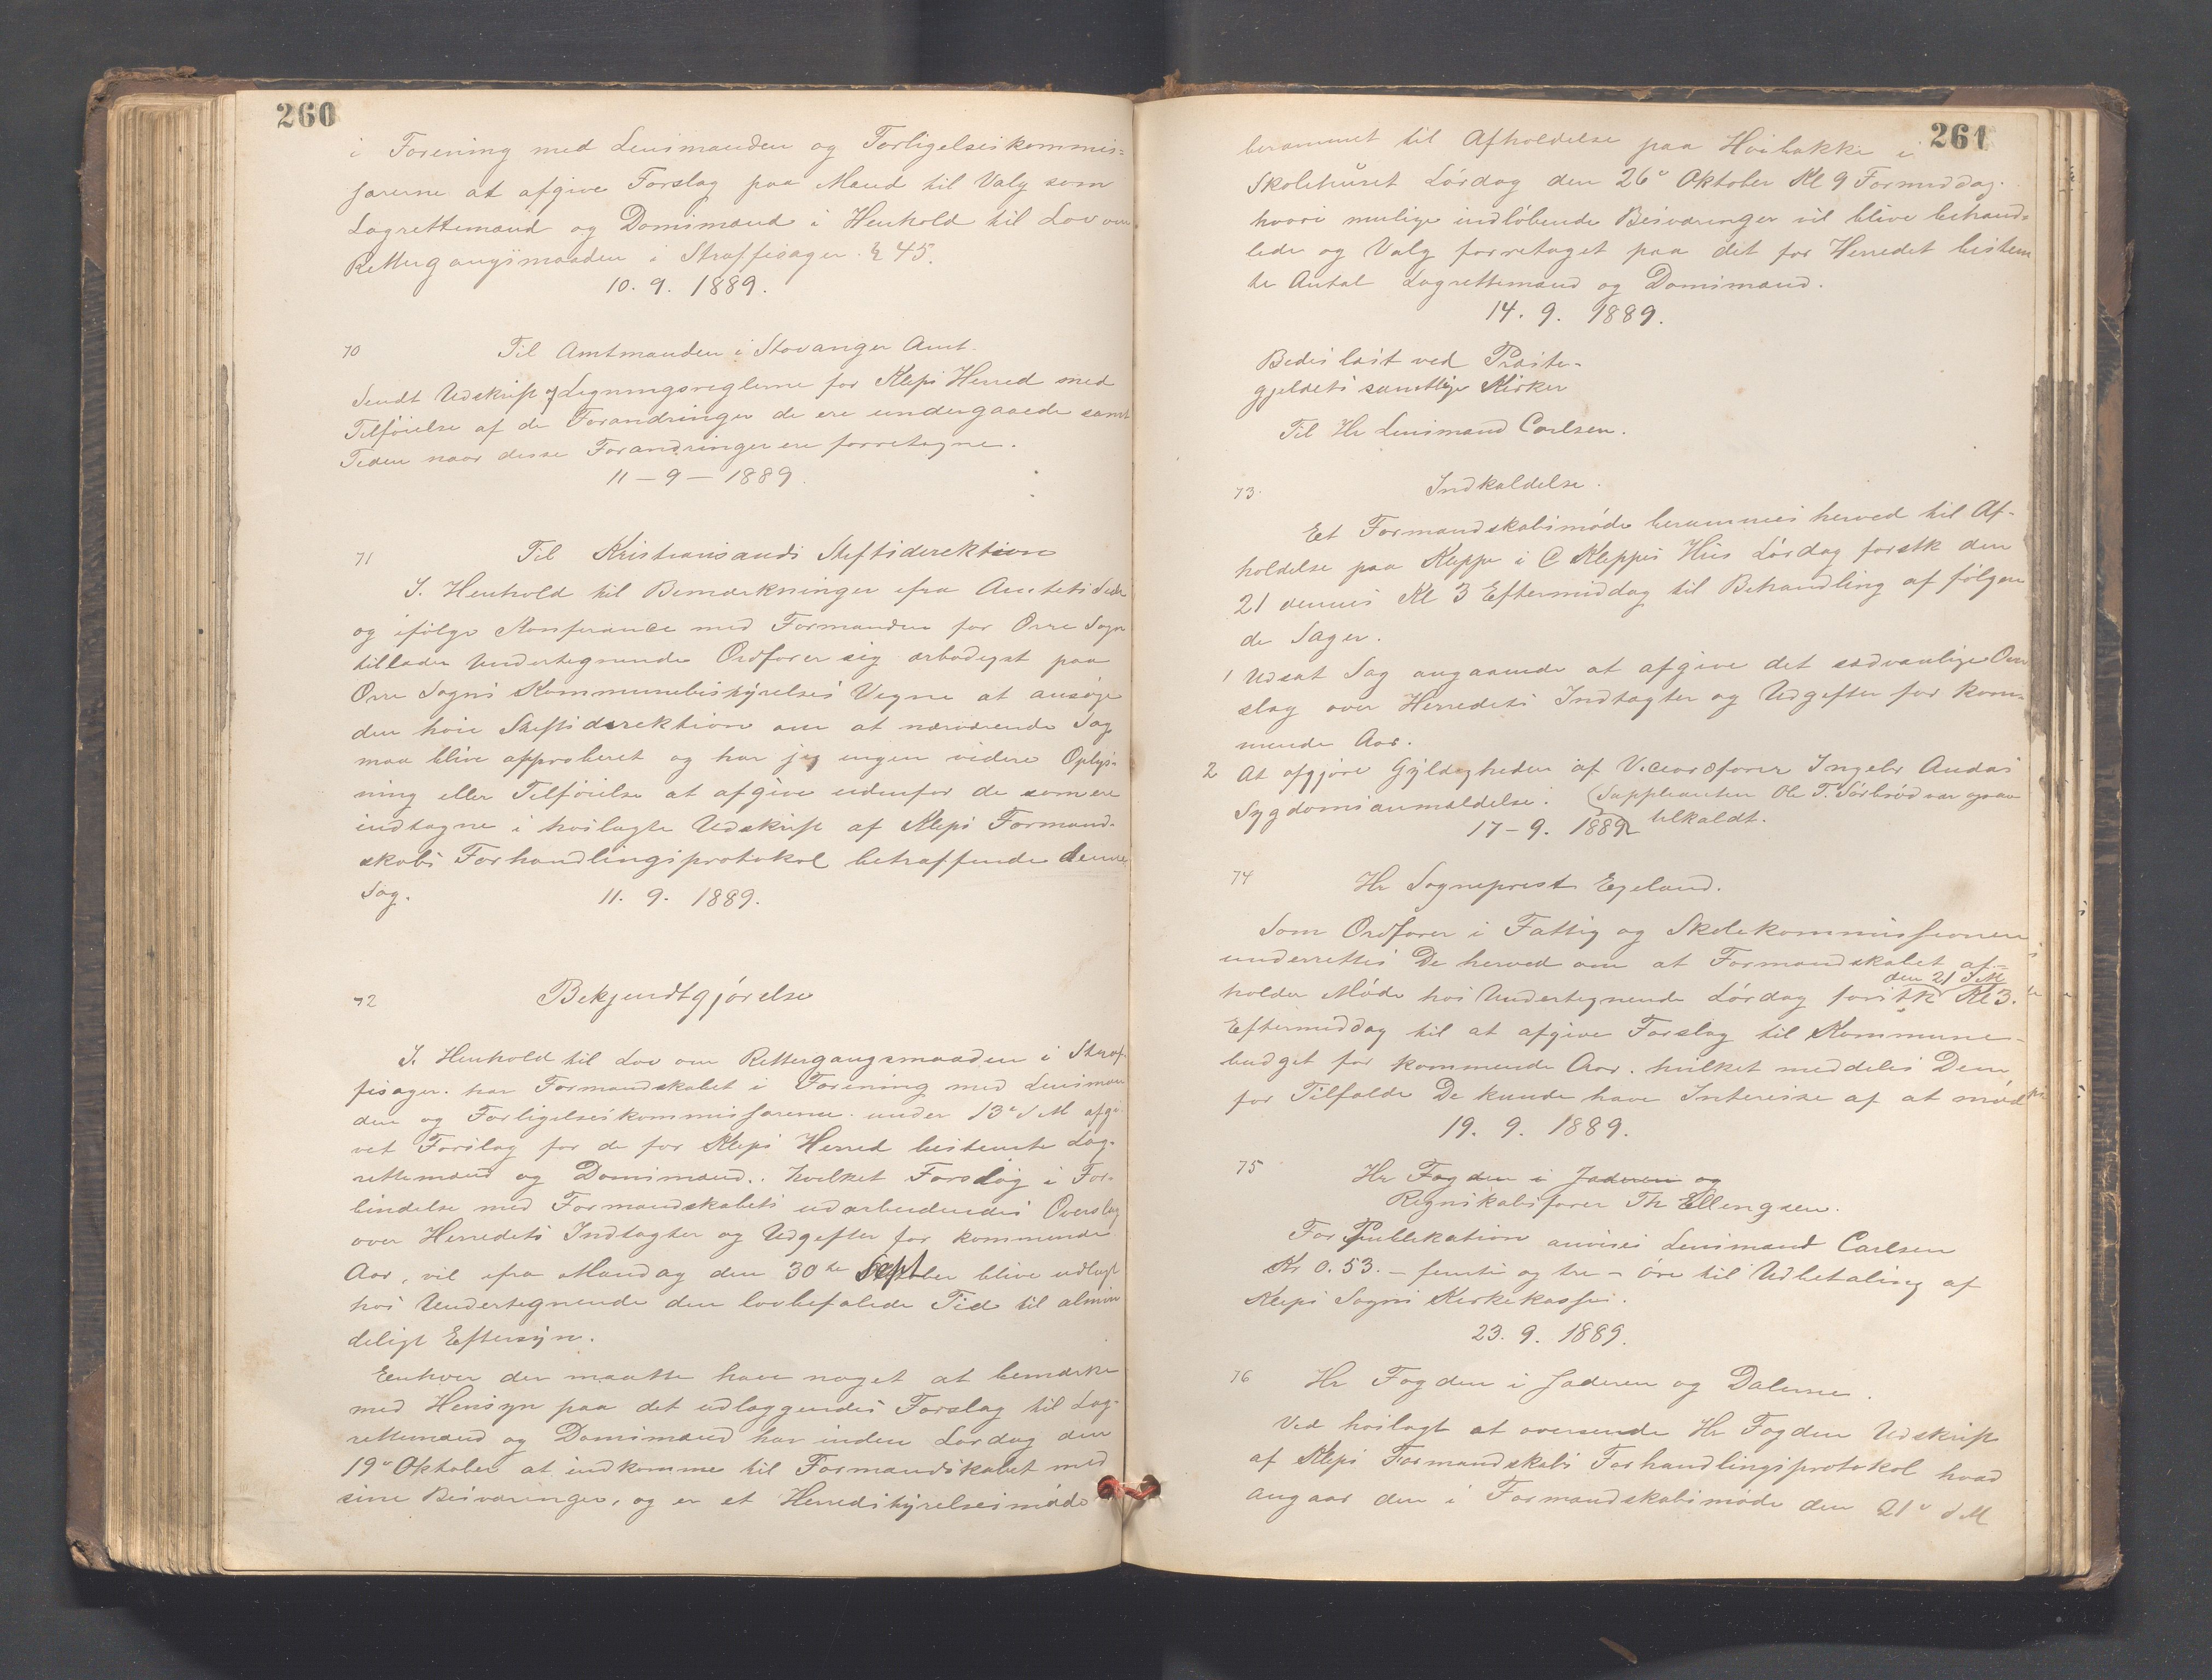 260
i Forening med Lensmanden og Forligelseskommis-
særerne at afgive Forslag paa Mænd til Valg som
Lagrettemænd og Domsmænd i Henhold til Lov om
Rettergangsmaaden i Straffesager. § 45.
10. 9. 1889.
70 Til Amtmanden i Stavanger Amt.
Sendt Udskrift af Ligningsreglerne for Kleps Herred med
Tilføielse af de Forandringer de ere undergaaede samt
Tiden naar disse Forandringer ere foretagne.
11 – 9 – 1889.
71 Til Kristiansands Stiftsdirektion
I. Henhold til Bemærkninger fra Amtets Side
og ifølge Konferance med Formanden for Orre Sogn
tillader Undertegnende Ordfører sig ærbødigst paa
Orre Sogns Kommunebestyrelses Vegne at ansøge
den høie Stiftsdirektion om at nærværende Sag
maa blive approberet og har jeg ingen videre Oplys-
ning eller Tilføielse at afgive udenfor de som ere
indtagne i hoslagte Udskrift af Kleps Formand-
skabs Forhandlingsprotokol betræffende denne
Sag. 11. 9. 1889.
72 Bekjendtgjørelse
I. Henhold til Lov om Rettergangsmaaden i Straf-
fesager. har Formandskabet i Forening med Lensman
den og Forligelseskommissærerne. under 13de d M afgi-
vet Forslag for de for Kleps Herred bestemte Lag-
rettemænd og Domsmænd.. hvilket Forslag i For-
bindelse med Formandskabets udarbeidendes Overslag
over Herredets Indtægter og Udgifter for kommende
Aar, vil fra Mandag den 30te Sept blive udlagt
hos Undertegnende den lovbefalede Tid til almin
deligt Eftersyn.
Enhver der maatte have noget at bemærke
med Hensyn paa det udlæggendes Forslag til Lag-
rettemænd og Domsmænd har inden Lørdag den
19de Oktober at indkomme til Formandskabet med
sine Besværinger, og er et Herredstyrelsesmøde
261
berammet til Afholdelse paa Hoibakke i
Skolehuset Lørdag den 26de Oktober Kl 9 Formiddag.
hvori mulige indløbende Besværinger vil blive behand-
lede og Valg forretaget paa det for Herredet bestem
te Antal Lagrettemænd og Domsmænd.
14. 9. 1889.
Bedes læst ved Præste-
gjeldets samtlige Kirker
Til Hr Lensmand Carlsen.
73. Indkaldelse.
Et Formandskabsmøde berammes herved til Af-
holdelse paa Kleppe i C Kleppes Hus Lørdag førstk den
21 dennes Kl 3 Eftermiddag til Behandling af følgen
de Sager.
1 Udsat Sag angaaende at afgive det sædvanlige Over
slag over Herredets Indtægter og Udgifter for kom-
mende Aar.
2 At afgjøre Gyldigheden af Viceordfører Ingebr Andas
Sygdomsanmeldelse. (Suppleanten Ole T. Sørbrød var ogsaa
17 – 9. 1889. tilkaldt.
74 Hr Sogneprest Egeland.
Som Ordfører i Fattig og Skolekommissionen
underrettes De herved om at Formandskabet af-
den 21 d M
holder Møde hos Undertegnende Lørdag førstk Kl 3.
Eftermiddag til at afgive Forslag til Kommune-
budget for kommende Aar. hvilket meddeles Dem,
for Tilfælde De kunde have Interesse af at møde
19. 9. 1889.
75 Hr Fogden i Jæderen og
Regnskabsfører Th Ellengsen.
For Publikation anvises Lensmand Carlsen
Kr 0.53. – femti og tre – øre til Udbetaling af
Kleps Sogns Kirkekasse.
23. 9. 1889.
76 Hr Fogden i Jæderen og Dalerne.
Ved hoslagt at oversende Hr Fogden Udskrift
af Kleps Formandskabs Forhandlingsprotokol hvad
angaar den i Formandskabsmøde den 21de d M